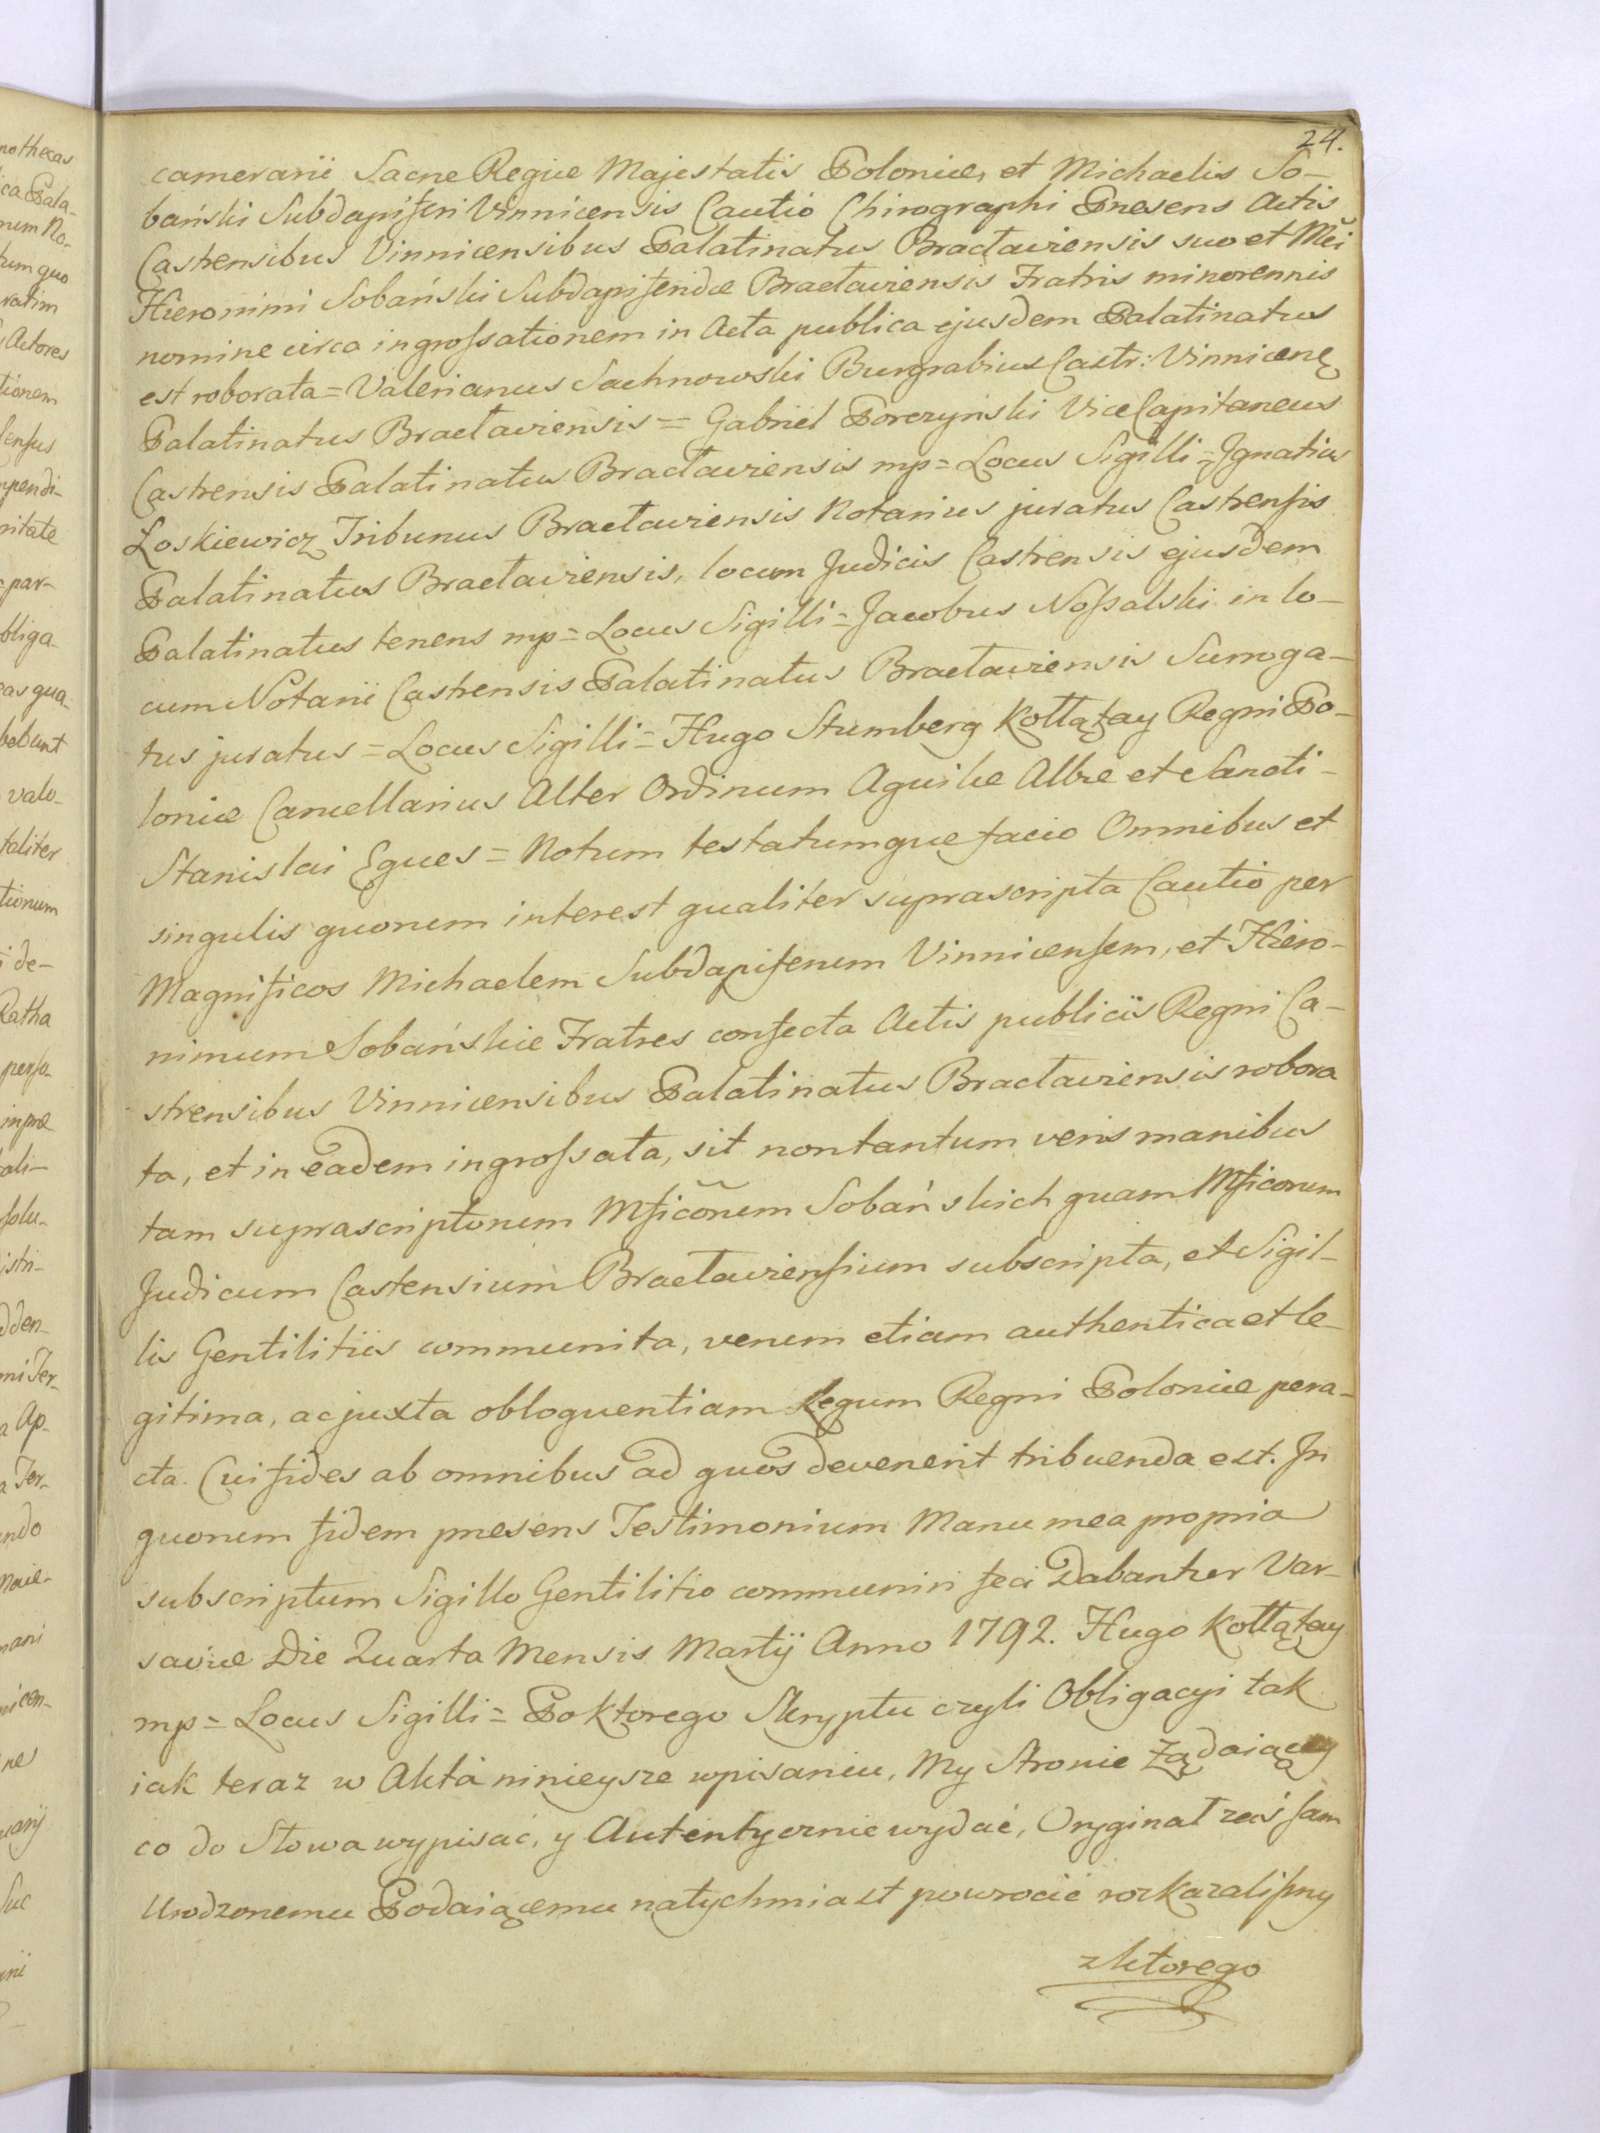 24.
camerarii Sacrae Regiae Majestatis Poloniae, et Michaelis So-
bański Subdapiferi Vinnicensis Cautio Chirographi Praesens Actis
Castrensibus Vinnicensibus Palatinatus Braclaviensis suo et Mei
Hieronimi Sobański Subdapiferidae Braclaviensis Fratris minorennis
nomine circa ingrossationem in Acta publica ejusdem Palatinatus
est roborata = Valerianus Sachnowski Burgrabius Castr: Vinnicens
Palatinatus Braclaviensis = Gabriel Porczyński ViceCapitaneus
Castrensis Palatinatus Braclaviensis mp = Locus Sigilli = Ignatius
Loskiewicz Tribunus Braclaviensis Notarius juratus Castrensis
Palatinatus Braclaviensis, locum Judicis Castrensis ejusdem
Palatinatus tenens mp = Locus Sigilli = Jacobus Nossalski in lo-
cum Notarii Castrensis Palatinatus Braclaviensis Surroga-
tus juratus = Locus Sigilli = Hugo Stumberg Kołłątay Regni Po-
loniae Cancellarius Alter Ordinum Aquilae Albae et Sancti-
Stanislai Eques = Notum testatumque facio Omnibus et
singulis quorum interest qualiter suprascripta Cautio per
Magnificos Michaelem Subdapiferum Vinnicensem, et Hiero-
nimum Sobańskie Fratres confecta Actis publicis Regni Ca-
strensibus Vinnicensibus Palatinatus Braclaviensis robora
ta, et in eadem ingrossata, sit non tantum veris manibus
tam suprascriptorum Mficorum Sobańskich quam Mficorum
Judicum Castensium Braclaviensium subscripta, et Sigil-
lis Gentilitiis communita, verum etiam authentica et le-
gitima, ac juxta obloquentiam Legum Regni Poloniae pera-
cta. Cui fides ab omnibus ad quos devenerit tribuenda est. In
quorum fidem praesens Testimonium Manu mea propria
subscriptum Sigillo Gentilitio communiri feci Dabantur Var-
saviae Die Quarta Mensis Martij Anno 1792. Hugo Kołłątay
mp = Locus Sigilli = Po którego Skryptu czyli Obligacyi tak
iak teraz w Akta ninieysze wpisaniu, My Stronie Żądaiącey
co do Słowa wypisać, y Autentycznie wydać, Oryginał zaś sam
Urodzonemu Podaiącemu natychmiast powrocić rozkazaliśmy
z którego